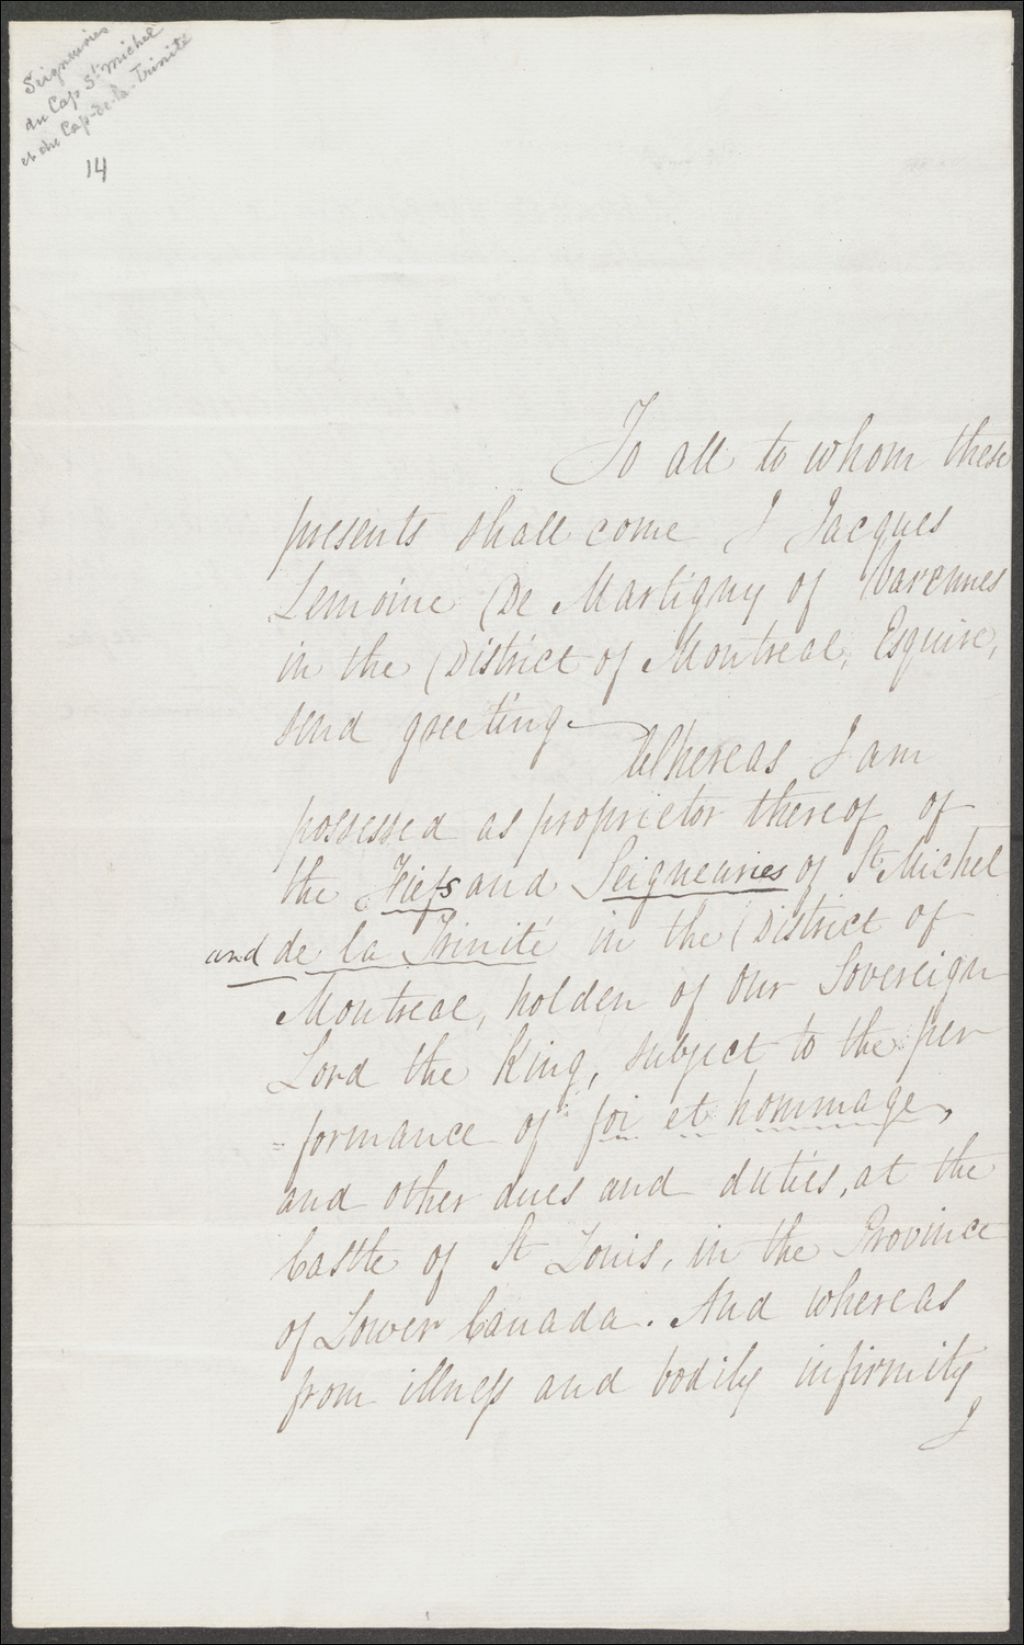 Seigneuries
du Cap St. Michel
et du Cap-de-la-Trinité
14
To all to whom these
presents shall come I Jacques
Lemoine De Martigny of Varennes
in the District of Montreal, Esquire,
send greeting—
Whereas I am
possessed as proprietor thereof of
the Fiefs and Seigneuries of St Michel
and de la Trinité in the District of
Montreal, holden of Our Sovereign
Lord the King, subject to the per
=formance of foi et hommage,
and other dues and duties, at the
Castle of St Louis, in the Province
of Lower Canada. And whereas
from illness and bodily infirmity
I